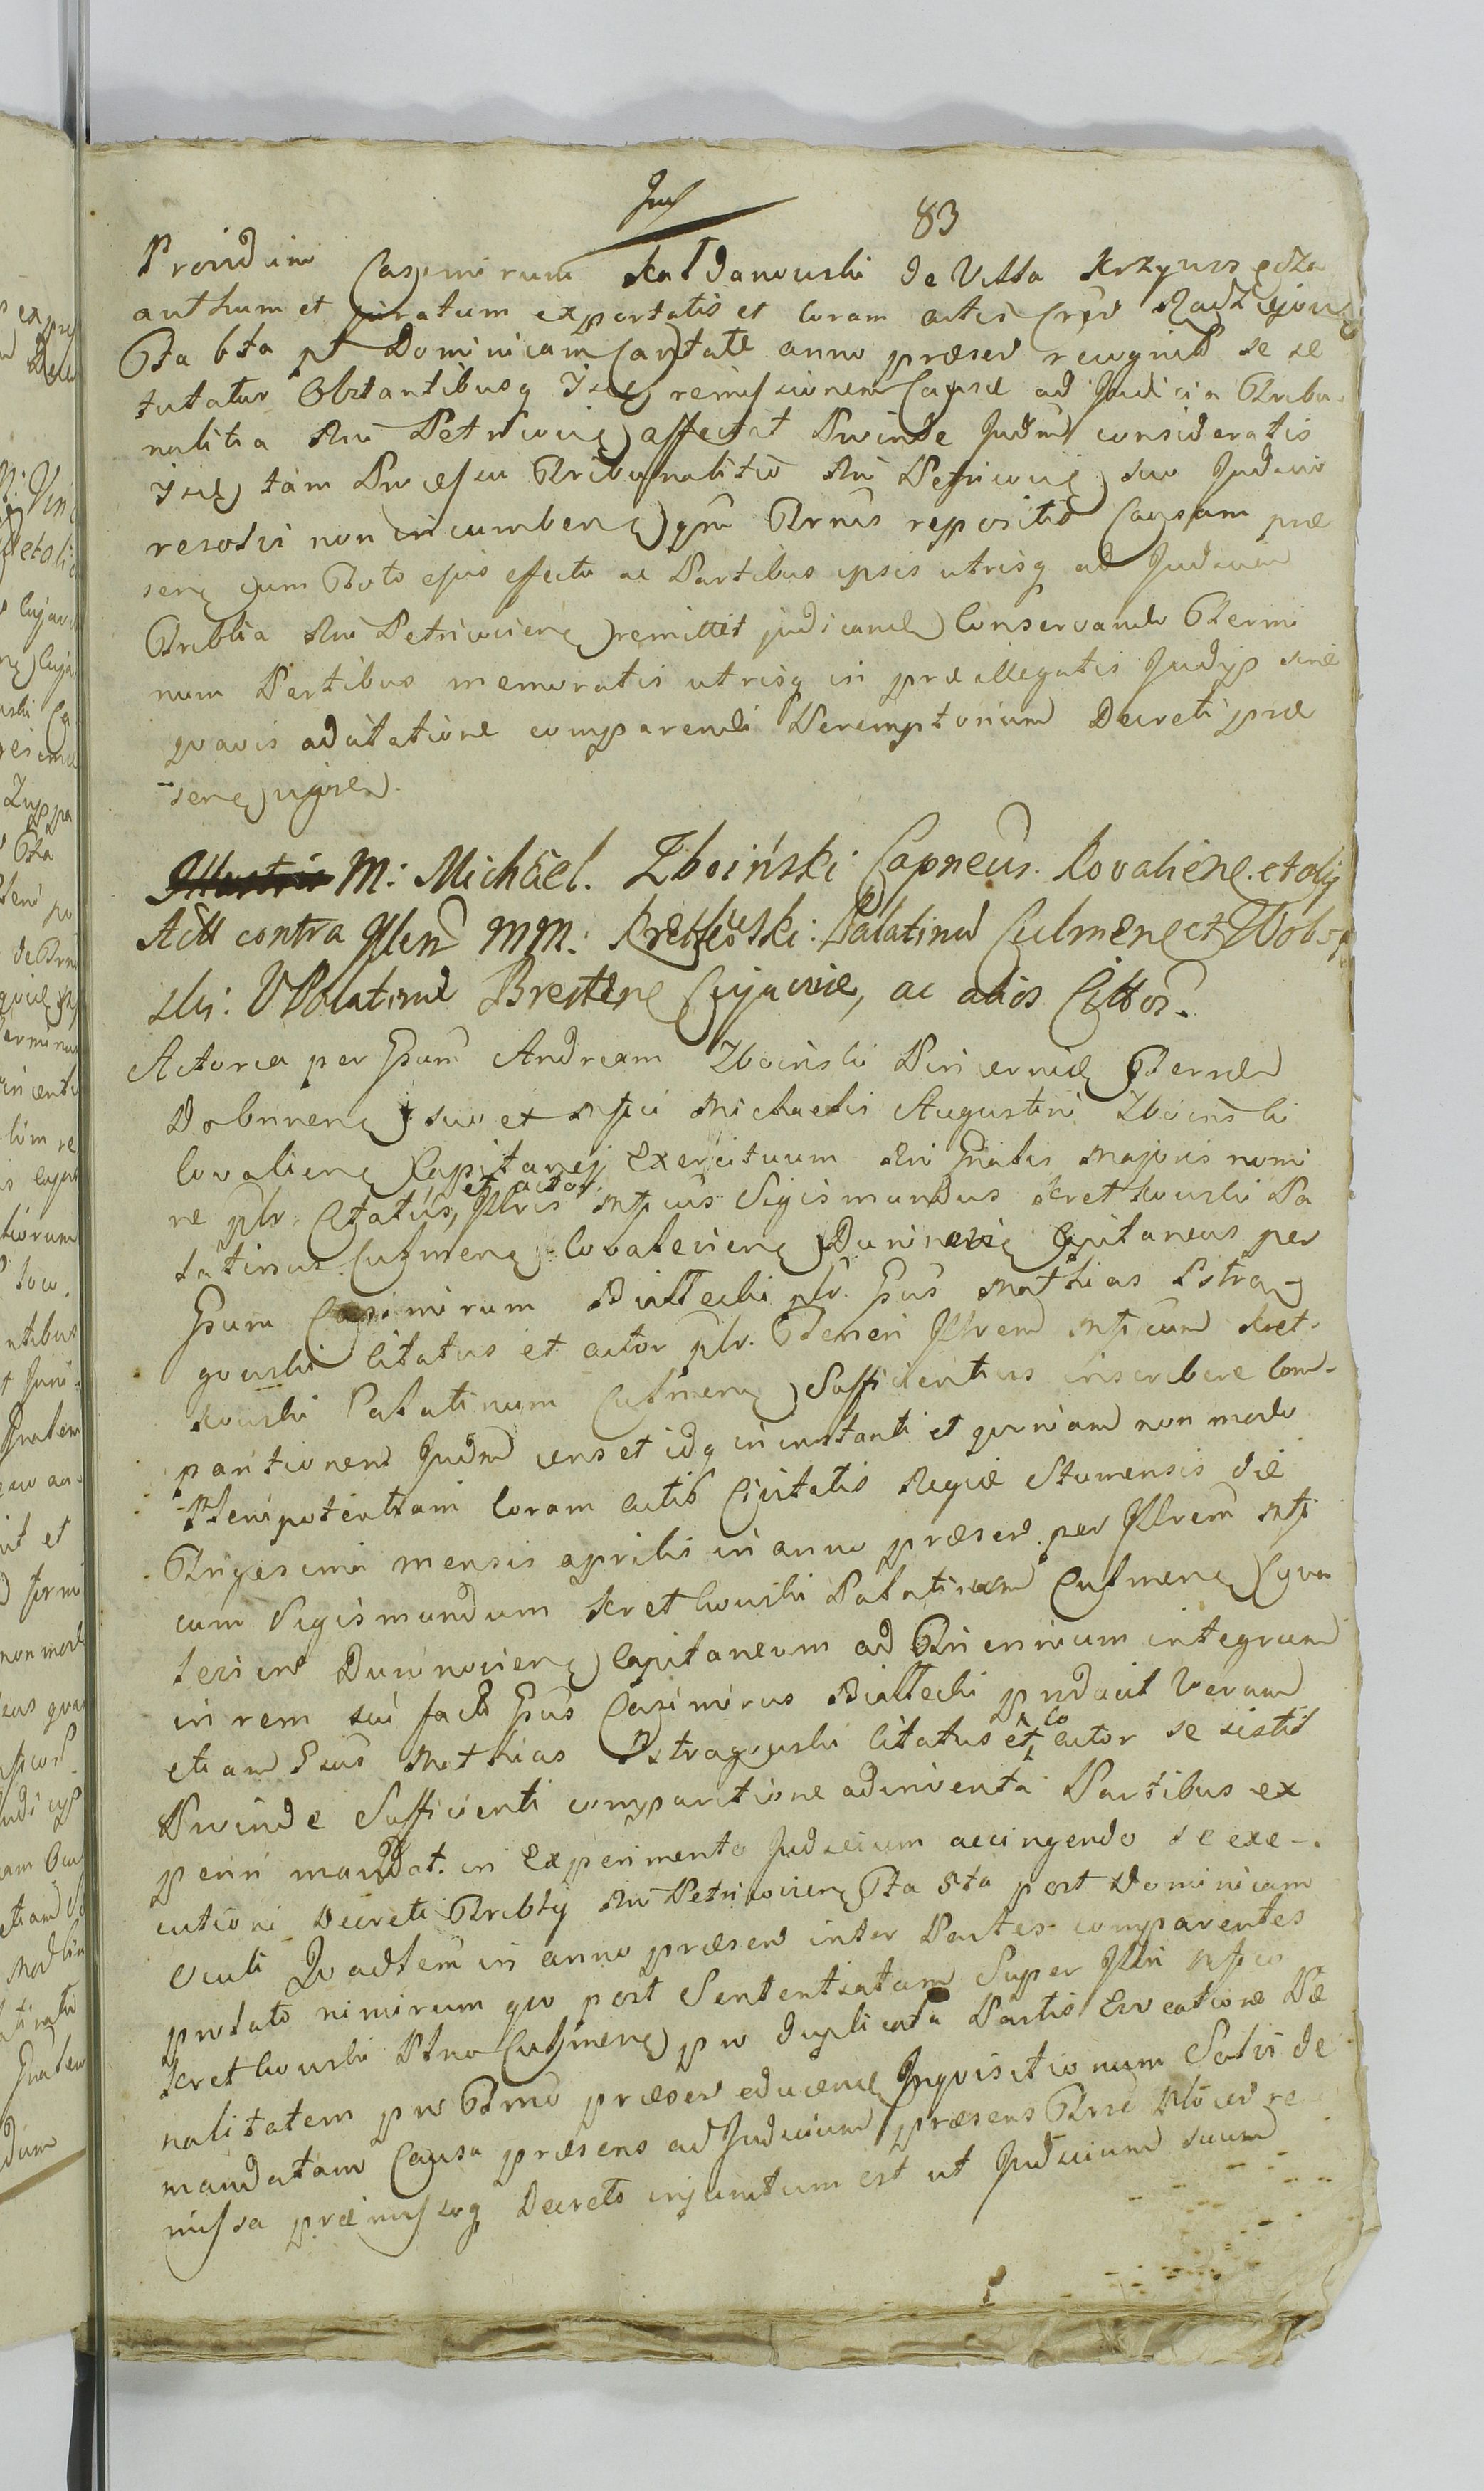 83
Providum Casimirum Kaldanowski de Villa Krzywosądza
authum et juratum expertatis et coram actis Cren Radziejow
Fta 6ta pt Dominicam Cantate anno præsen recognit se se
tutatur Obstantibusq remissionem Causæ ad Judicia Tribu
nalitia Rni Petricovien affectat Proinde Judm consideratis
tam Processu Tribunalitio Rni Petricovien suo Judicio
resolvi non incumben Trnis repositis Causam præ
sen cum Toto ejus effectu ac Partibus ipsis utrisq ad Judicium
Triblia Rni Petricovien remittit judicand Conservando Termi
num Partibus memoratis utrisq in præallegatis Judijs sine
quavis adcitatione comparendi Peremptorium Decreti præ
sen vigore
M: Michael. Zboiński Capneus. Kovalien. et alij
Actt contra Illm MM: Kretkowski: Palatinu Culmen et
ski: VPalatinu Bresten Cujaviæ, ac alios Cittos.
Actorea per Gsum Andream Zboinski Pincernid Terræ
Dobrinen suo et Mfci Michaelis Augustini Zboinski
Kovalien Capitanej Exercituum Rni Gnalis Majoris nomi
ne plr. Citatus, et actor Illris Mfcus Sigismundus Kretkowski Pa
latinus Culmen Kovalevien Duninovien Capitaneus per
Gsum Casimirum Białłecki plr. Gsus Mathias Ostra
gowski Citatus et actor plr. Teneri Illrem Mfcum Kret
kowski Palatinum Culmen Sufficientius inscribere Com
paritionem Judm censet idq in instanti et quoniam non modo
Plenipotentiam Coram actis Civitatis Regiæ Stumensis die
Trigesima mensis aprilis in anno præsen. per Illrem Mfi
cum Sigismundum Kretkowski Palatinum Culmen Cova
levien Duninovien Capitaneum ad Triennium integrum
in rem sui factā Gsus Casimirus Białłecki produxit Verum
etiam Gsus Mathias Ostragowski Citatus et Coactor se sistit
Proinde Sufficienti comparitione adinventa Partibus ex
periri mandat. in Experimento Judicium accingendo se exe
cutioni Decreti Triblij Rni Petricovien Fta 5ta post Dominicam
Oculi Quadlem in anno præsen inter Partes comparentes
prolato nimirum quo post Sententiatam Super Illri Mfco
Kretkowski Plno Culmen pro duplicata Partis Evocatione Pæ
nalitatem pro Trno præsen educend Inqvisitionum Satis de
mandatam Causa præsens ad Judicium præsens Trre Plocen re
missa præmissoq Decreto injunctum est ut Judicium suum